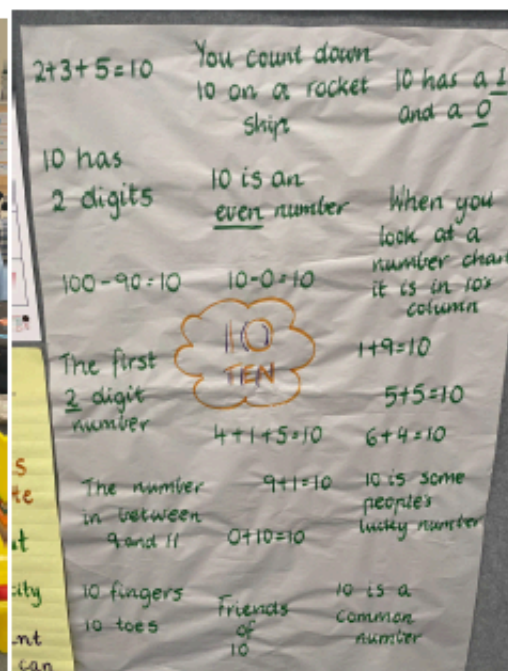 2+3+5=10
You count down
10 on a rocket
ship
10 has a 1
and a 0
10 has
2 digits
10 is an
even number
When you
look at a
number chart
it is in 10's
column
100-90=10
10-0=10
10
TEN
1+9=10
The first
2 digit
number
5+5=10
4+1+5=10
6+4=10
The number
in between
9 and 11
9+1=10
0+10=10
10 is some
people's
lucky number
10 fingers
10 toes
Friends
of
10
10 is a
common
number
can